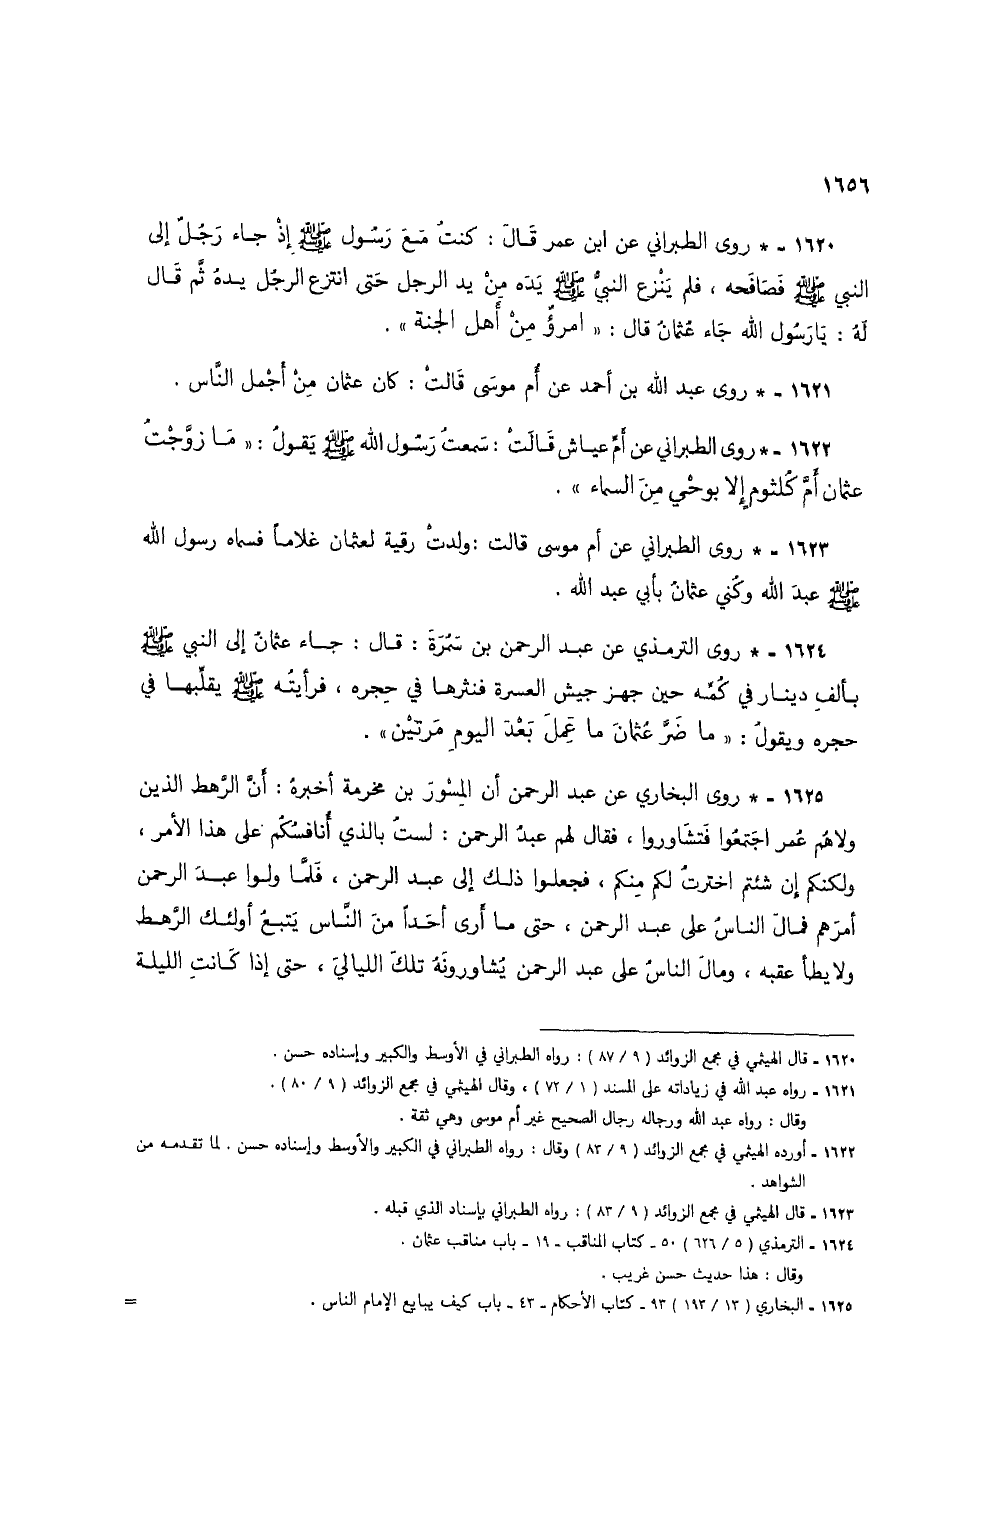 ١٦٥٦
١٦٢٠ - * روى الطبراني عن ابن عمر قَالَ : كنتُ مَعَ رَسُول ﷺ إذْ جاء رَجُلٌ إلى
النبي ﷺ فَصَافَحه ، فلم يَنْزع النبيُّ ﷺ يَدَه مِنْ يد الرجل حَتى انتزع الرجُل يدهُ ثَّم قَال
لَهُ : يَارَسُول الله جَاء عُثمانُ قال : « امرؤٌ مِنْ أَهل الجنة » .
١٦٢١ - * روى عبد الله بن أحمد عن أُم موسَى قَالتْ : كان عثمان مِنْ أَجْمل النَّاس .
١٦٢٢ - * روى الطبراني عن أُمِّ عياش قَالَتْ : سَمعتُ رَسُول الله ﷺ يَقولُ : « مَا زوَّجْتُ
عثمان أُمَّ كُلثومٍ إلا بوحْي مِنَ السماء » .
١٦٢٣ - * روى الطبراني عن أم موسى قالت : ولدتْ رقية لعثمان غلاماً فسماه رسول الله
ﷺ عبدَ الله وكُني عثمانُ بأبي عبد الله .
١٦٢٤ - * روى الترمذي عن عبد الرحمن بن سَمُرَةَ : قال : جاء عثمانُ إلى النبي ﷺ
بألفِ دينار في كُمِّه حين جهز جيش العسرة فنثرها في حِجره ، فرأيتُه ﷺ يقلِّبها في
حجره ويقولُ : « ما ضَرَّ عُثمانَ ما عَمِلَ بَعْدَ اليومِ مَرتَيْن » .
١٦٢٥ - * روى البخاري عن عبد الرحمن أن المِسْوَرَ بن مخرمة أخبرهُ : أَنَّ الرَّهط الذين
ولاهُم عُمر اجتَمعُوا فَتشَاوروا ، فقال لهم عبدُ الرحمن : لستُ بالذي أُنافسُكُم على هذا الأمر ،
ولكنكم إن شئتم اخترتُ لكم مِنكم ، فجعلوا ذلك إلى عبد الرحمن ، فَلمَّا ولوا عبدَ الرحمن
أمرَهم فمالَ الناسُ على عبد الرحمن ، حتى ما أَرى أحَداً منَ النَّاس يَتبعُ أولئك الرَّهط
ولا يطأ عقبه ، ومالَ الناسُ على عبد الرحمن يُشاورونَهُ تلكَ اللياليَ ، حتى إذا كَانتِ الليلة
١٦٢٠ - قال الهيثمي في مجمع الزوائد ( ٩ / ٨٧ ) : رواه الطبراني في الأوسط والكبير وإسناده حسن .
١٦٢١ - رواه عبد الله في زياداته على المسند ( ١ / ٧٢ ) ، وقال الهيثمي في مجمع الزوائد ( ٩ / ٨٠ ) .
وقال : رواه عبد الله ورجاله رجال الصحيح غير أم موسى وهي ثقة .
١٦٢٢ - أورده الهيثمي في مجمع الزوائد ( ٩ / ٨٣ ) وقال : رواه الطبراني في الكبير والأوسط وإسناده حسن . لما تقدمه من
الشواهد .
١٦٢٣ - قال الهيثمي في مجمع الزوائد ( ٩ / ٨٣ ) : رواه الطبراني بإسناد الذي قبله .
١٦٢٤ - الترمذي ( ٥ / ٦٢٦ ) ٥٠ - كتاب المناقب - ١٩ - باب مناقب عثمان .
وقال : هذا حديث حسن غريب .
١٦٢٥ - البخاري ( ١٣ / ١٩٣ ) ٩٣ - كتاب الأحكام - ٤٣ - باب كيف يبايع الإمام الناس . =